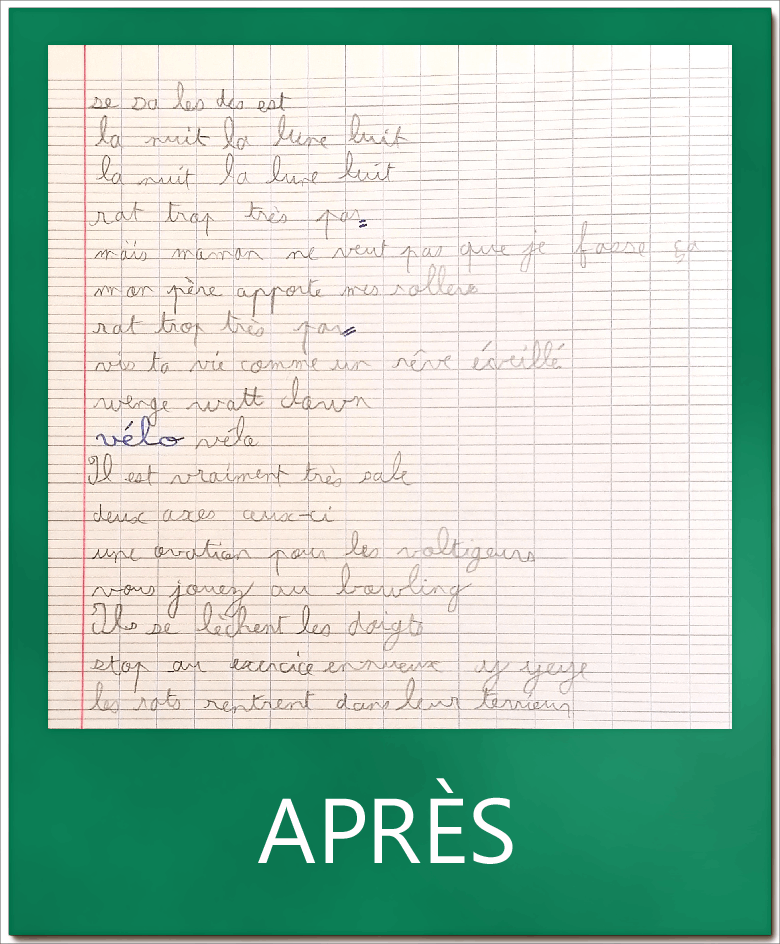 se sa les des est
la nuit la lune luit
la nuit la lune luit
rat trop très pas
mais maman ne veut pas que je fasse ça
mon père apporte mes rollers
rat trop très pas
vis ta vie comme un rêve éveillé
wenge watt clown
vélo vélo
Il est vraiment très sale
deux axes ceux-ci
une ovation pour les voltigeurs
vous jouez au bowling
Ils se lèchent les doigts
stop au exercice ennuieux y yeye
les rats rentrent dans leur terrieur
APRÈS